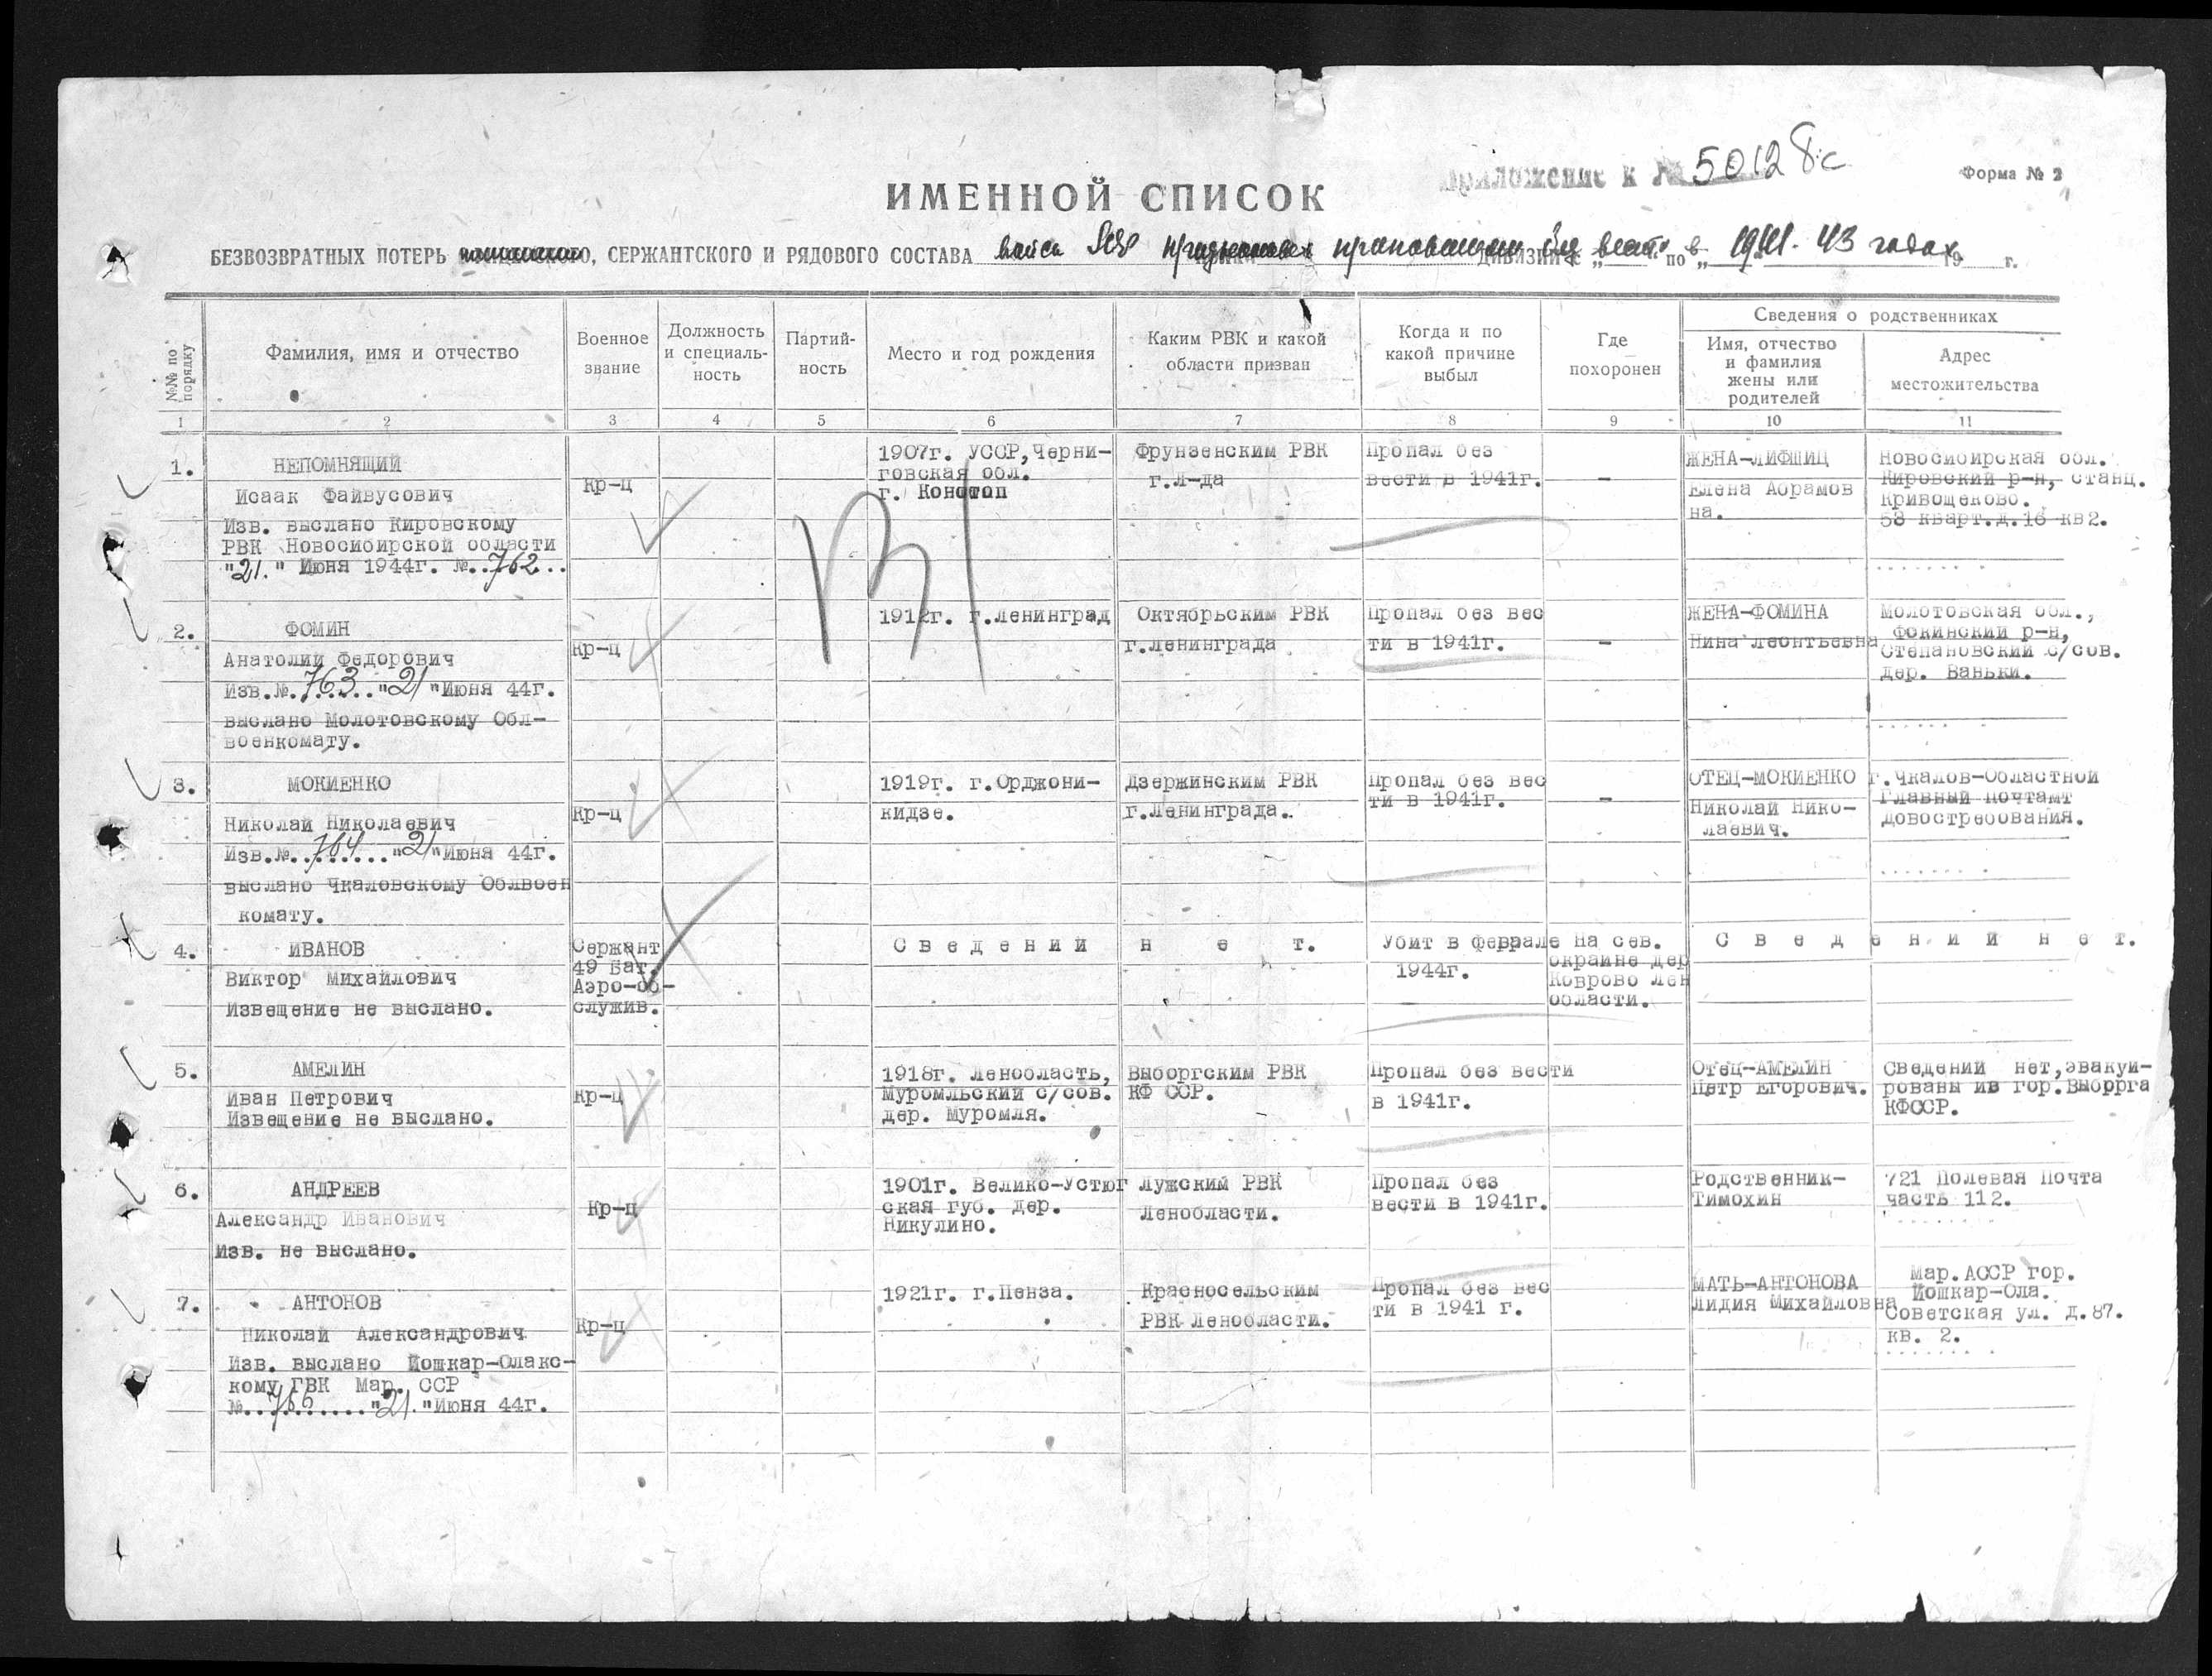 Приложение к № 50128с
Форма № 2
ИМЕННОЙ СПИСОК
БЕЗВОЗВРАТНЫХ ПОТЕРЬ СЕРЖАНТСКОГО И РЯДОВОГО СОСТАВА войск пропавших без вести в 1941-43 годах
№№ по порядку
Фамилия, имя и отчество
Военное звание
Должность и специаль-ность
Партий-ность
Место и год рождения
Каким РВК и какой области призван
Когда и по какой причине выбыл
Где похоронен
Сведения о родственниках
Имя, отчество и фамилия жены или родителей
Адрес местожительства
1 2 3 4 5 6 7 8 9 10 11
1.
НЕПОМНЯЩИЙ
Исаак Файвусович
Изв. выслано Кировскому
РВК Новосибирской области
"21." Июня 1944г. №..762..
Кр-ц
1907г. УССР,Черни-
говская обл.
г. Конотоп
Фрунзенским РВК
г.Л-да
Пропал без
вести в 1941г.
-
ЖЕНА-ЛИФШИЦ
Елена Абрамов
на.
Новосибирская обл.
Кировский р-н, станц.
Кривощеково.
53 кварт.д.16 кв2.
2.
ФОМИН
Анатолий Федорович
Изв.№.763..."21"Июня 44г.
выслано Молотовскому Обл-
военкомату.
Кр-ц
1912г. г.Ленинград
Октябрьским РВК
г.Ленинграда
Пропал без вес
ти в 1941г.
-
ЖЕНА-ФОМИНА
Нина Леонтьевна
Молотовская обл.,
Фокинский р-н,
Степановский с/сов.
дер. Ваньки.
3.
МОКИЕНКО
Николай Николаевич
Изв.№..764...."21"Июня 44г.
выслано Чкаловскому Облвоен
комату.
Кр-ц
1919г. г.Орджони-
кидзе.
Дзержинским РВК
г.Ленинграда.
Пропал без вес
ти в 1941г.
-
ОТЕЦ-МОКИЕНКО
Николай Нико-
лаевич.
г.Чкалов-Областной
Главный Почтамт
довостребования.
4.
ИВАНОВ
Виктор Михайлович
Извещение не выслано.
Сержант
49 Бат.
Аэро-об-
служив.
Сведений нет.
Убит в феврале
1944г.
на сев.
окраине дер
Коврово Лен
области.
Сведений нет.
5.
АМЕЛИН
Иван Петрович
Извещение не выслано.
Кр-ц
1918г. Ленобласть,
Муромльский с/сов.
дер. Муромля.
Выборгским РВК
КФ ССР.
Пропал без вести
в 1941г.
Отец-АМЕЛИН
Петр Егорович.
Сведений нет,эвакуи-
рованы ив гор.Выоррга
КФССР.
6.
АНДРЕЕВ
Александр Иванович
Изв. не выслано.
Кр-ц
1901г. Велико-Устюг
ская губ. дер.
Никулино.
Лужский РВК
Ленобласти.
Пропал без
вести в 1941г.
Родственник-
Тимохин
721 Полевая Почта
часть 112.
7.
АНТОНОВ
Николай Александрович
Изв. выслано Йошкар-Олакс-
кому ГВК Мар. ССР
№..765......"21."Июня 44г.
Кр-ц
1921г. г.Пенза.
Красносельским
РВК Ленобласти.
Пропал без вес
ти в 1941 г.
МАТЬ-АНТОНОВА
Лидия Михайловна
Мар.АССР гор.
Йошкар-Ола.
Советская ул. д.87.
кв. 2.